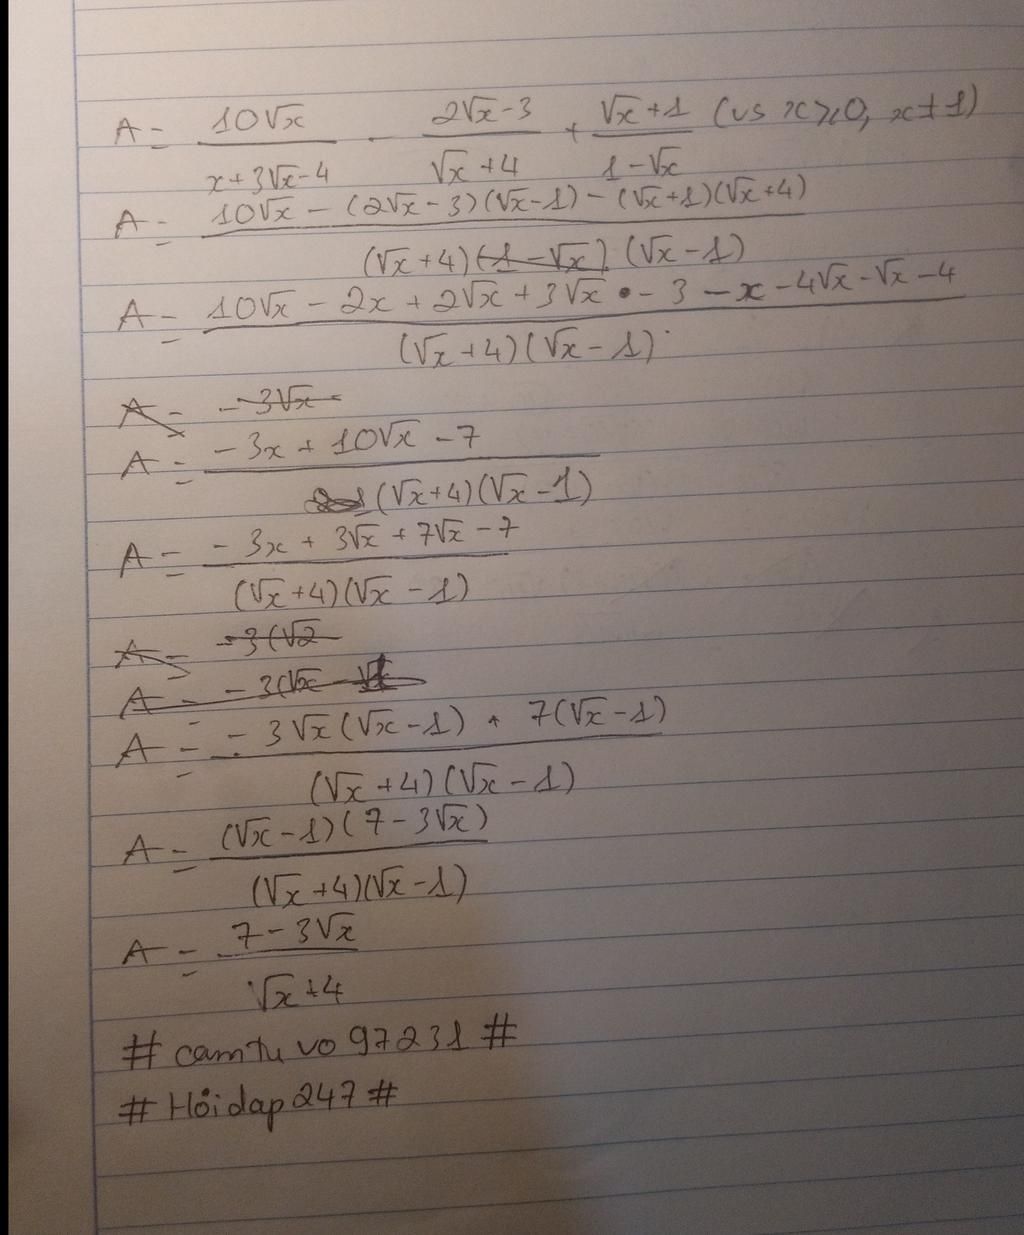 A = 10√x / (x + 3√x - 4) - (2√x - 3) / (√x + 4) + (√x + 1) / (1 - √x) (vs x ⩾ 0, x ≠ 1)
A = (10√x - (2√x - 3)(√x - 1) - (√x + 1)(√x + 4)) / ((√x + 4) (1 - √x) (√x - 1))
A = (10√x - 2x + 2√x + 3√x - 3 - x - 4√x - √x - 4) / ((√x + 4)(√x - 1))
A = - 3√x
A = (- 3x + 10√x - 7) / ((√x + 4)(√x - 1))
A = (- 3x + 3√x + 7√x - 7) / ((√x + 4)(√x - 1))
A = - 3(√2
A = - 3(√x -
A = (- 3√x(√x - 1) + 7(√x - 1)) / ((√x + 4)(√x - 1))
A = ((√x - 1)(7 - 3√x)) / ((√x + 4)(√x - 1))
A = (7 - 3√x) / (√x + 4)
# camtu vo 97231 #
# Hỏi dap 247 #